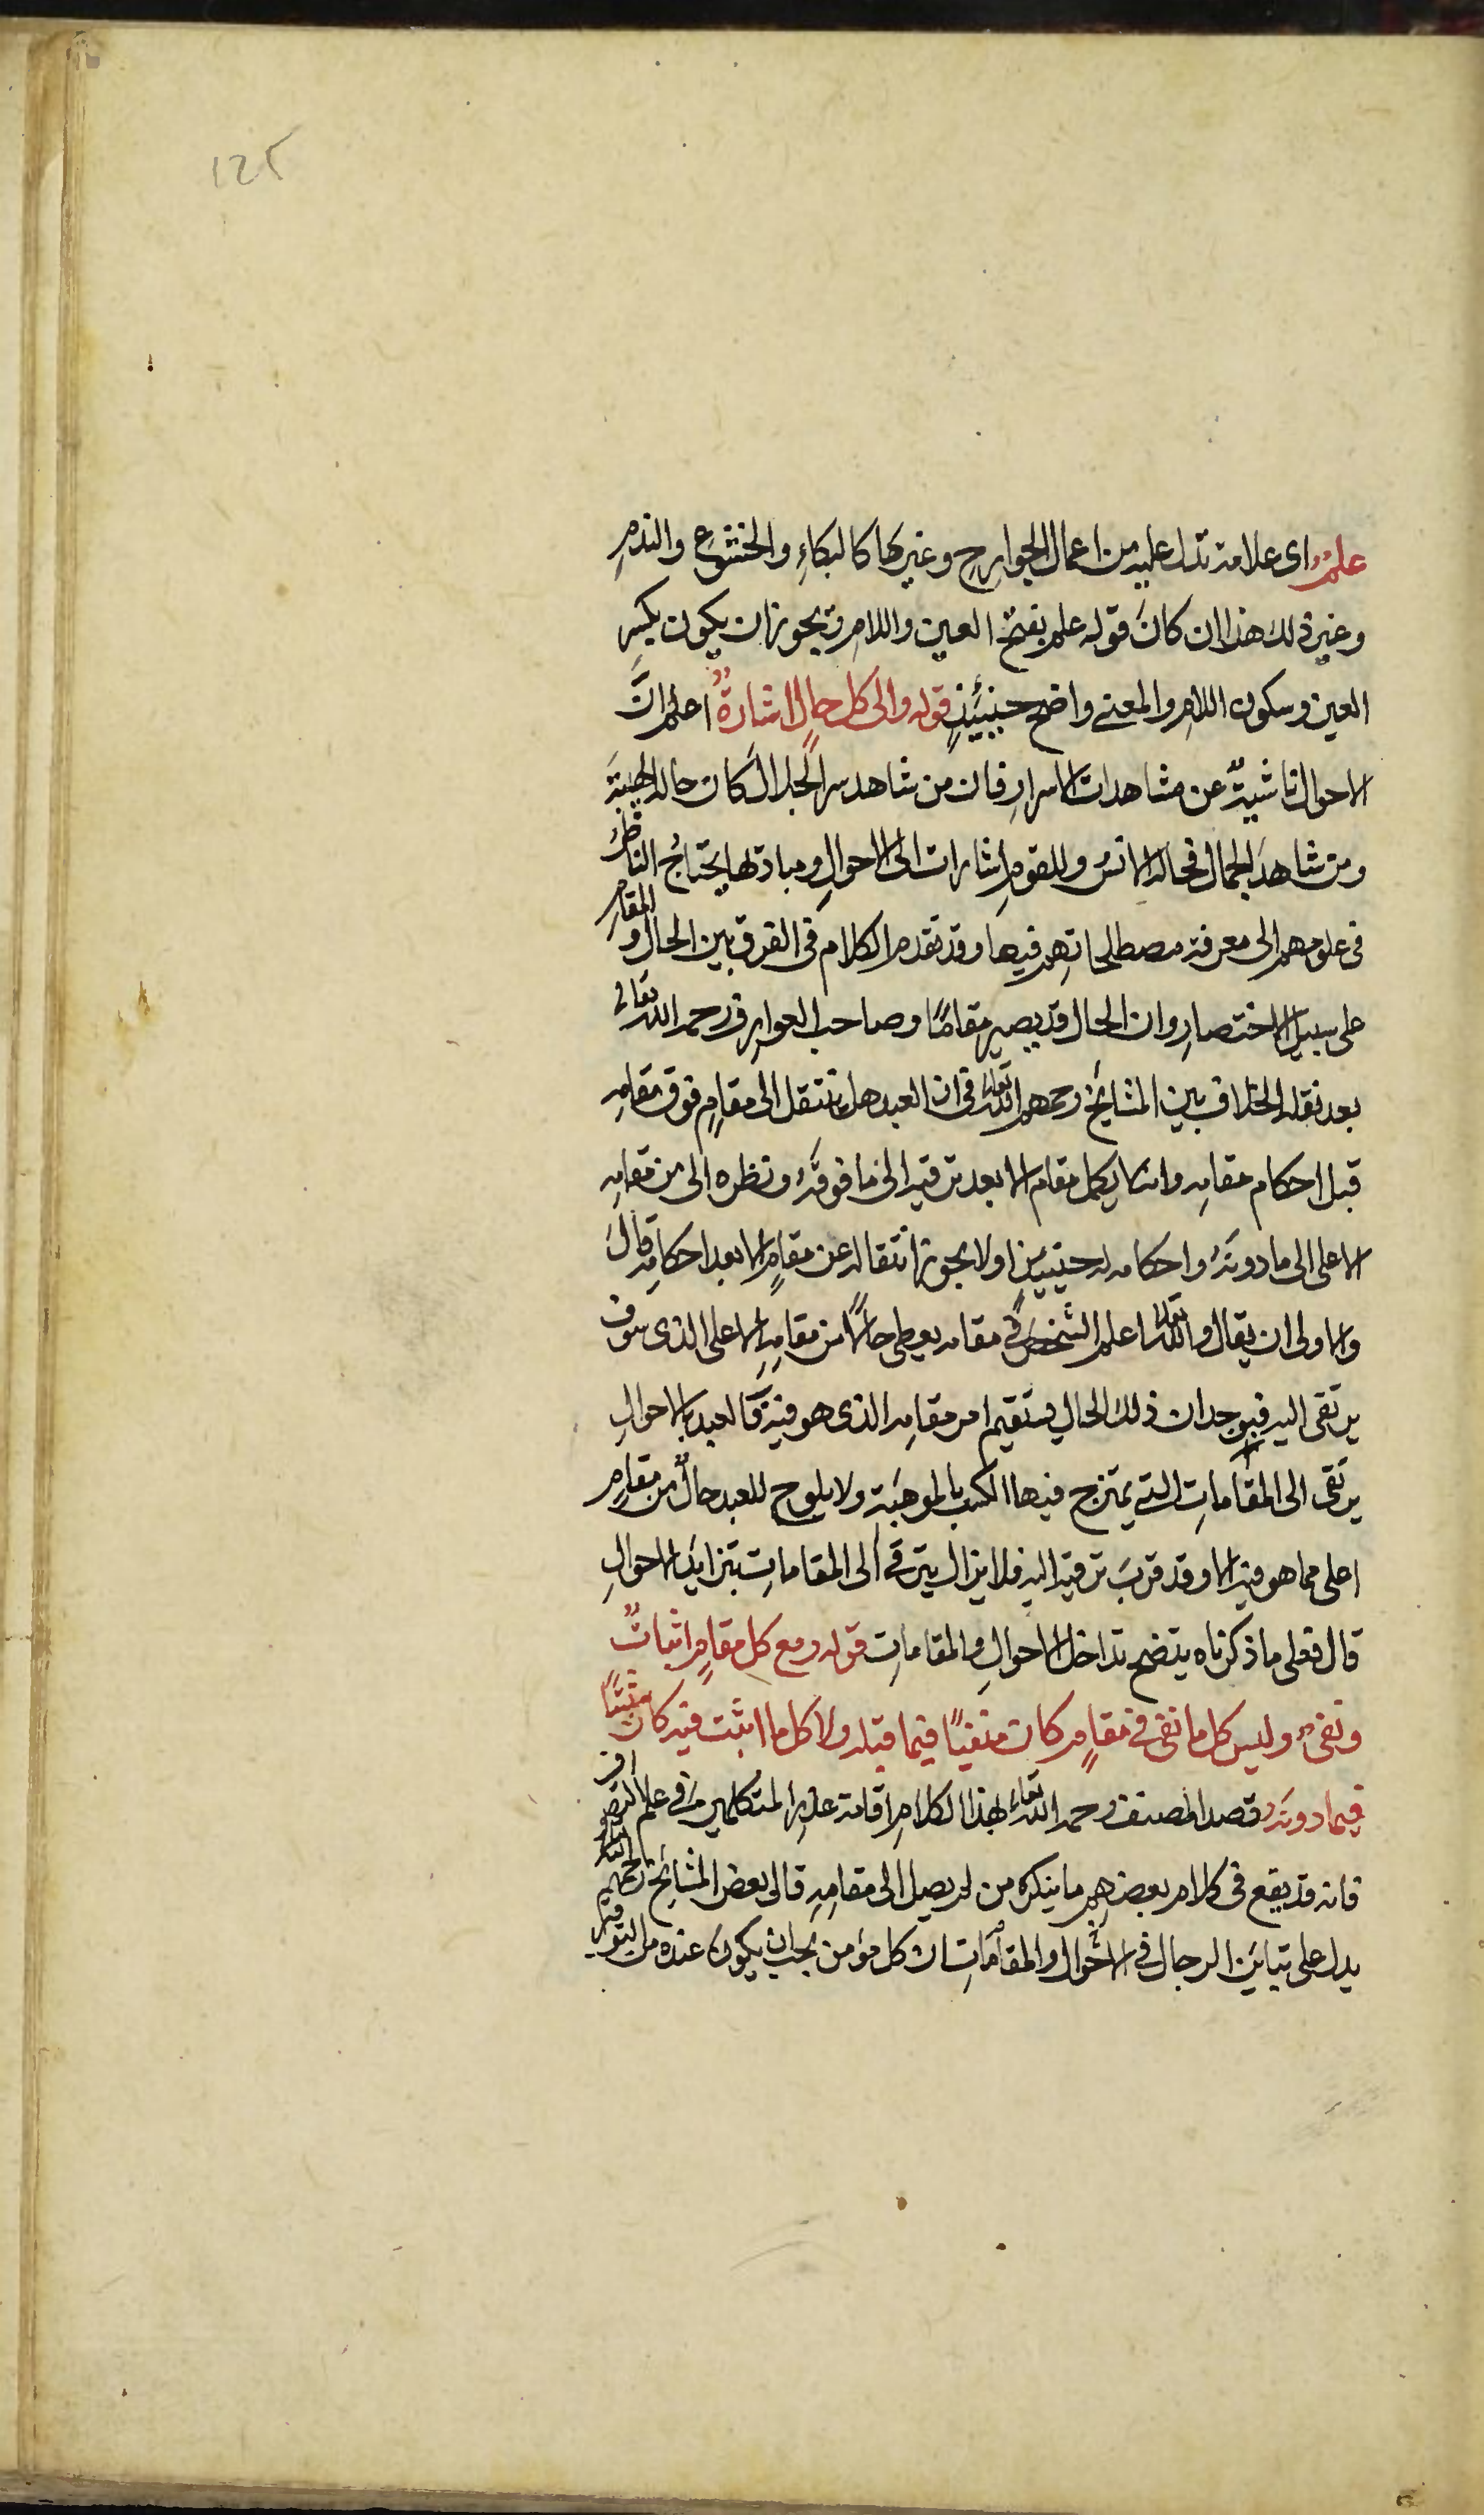 125
علمٌ اى علامة تدل عليه من اعمال الجوارح وغيرها كالبكاءِ والخشوع والندمِ
وغير ذلك هذا ان كانَ قوله علم بفتح العين واللامِ ويجوز ان يكون بكسرِ
العين وسكون اللامِ والمعنى واضح حينئيذٍ قوله والى كل حالٍ اشارةٌ اعلم انَّ
الاحوال ناشيةٌ عن مشاهدات الاسرارِ فان من شاهد سر الجلال كان حاله الهيبةَ
ومن شاهد الجمال فحاله الانسُ وللقومِ اشارات الى الاحوالِ ومبادئها يحتاج الناظرُ
فى علومهم الى معرفة مصطلحاتهِم فيها وقد تقدم الكلام فى الفرق بين الحال والمقامِ
على سبيل الاختصارِ وان الحال قد يصير مقامًا وصاحب العوارف رحمه الله تعالى
بعد نقله الخلاف بين المشايخ رحمهم الله تعالى فى ان العبد هل ينتقل الى مقامٍ فوق مقامِه
قبل احكام مقامِه وانما يكمل مقام الا بعد ترقيه الى ما فوقَهُ ونظره الى من مقامِه
الاعلى الى ما دونَهُ واحكامه له حينئيذٍ اولا يجوز انتقاله عن مقامٍ الا بعد احكامِه قالَ
والاولى ان يقال والله تعالى اعلم الشخص فى مقامه يعطى حالًا من مقامِه الاعلى الذى سوف
يرتقى اليه فبوجدان ذلك الحال يستقيم امر مقامِه الذى هو فيه فالعبد بالاحوالِ
يرتقى الى المقاماتِ التى يمتزج فيها الكسب بالموهبة ولا يلوح للعبد حالٌ من مقامٍ
اعلى مما هو فيه الا وقد قربَ ترقيه اليه فلا يزال يترقى الى المقاماتِ بتزايد الاحوالِ
قال فعلى ما ذكرناه يتضح تداخل الاحوالِ والمقاماتِ قوله ومع كل مقامٍ اثباتٌ
ونفىٌ وليس كل ما نفى فى مقامٍ كان منفيًا فيما قبله ولا كل ما اثبت فيه كان مثبتًا
فيما دونَهُ قصد المصنف رحمه الله تعالى بهذا الكلامِ اقامة عذرِ المتكلمين فى علم التصوف
فانه قد يقع فى كلام بعضهِم ما ينكره من لم يصل الى مقامِه قال بعض المشايخ رحمهم الله
يدل على تباين الرجال فى الاحوال والمقاماتِ ان كل مؤمن يجب ان يكون عنده من